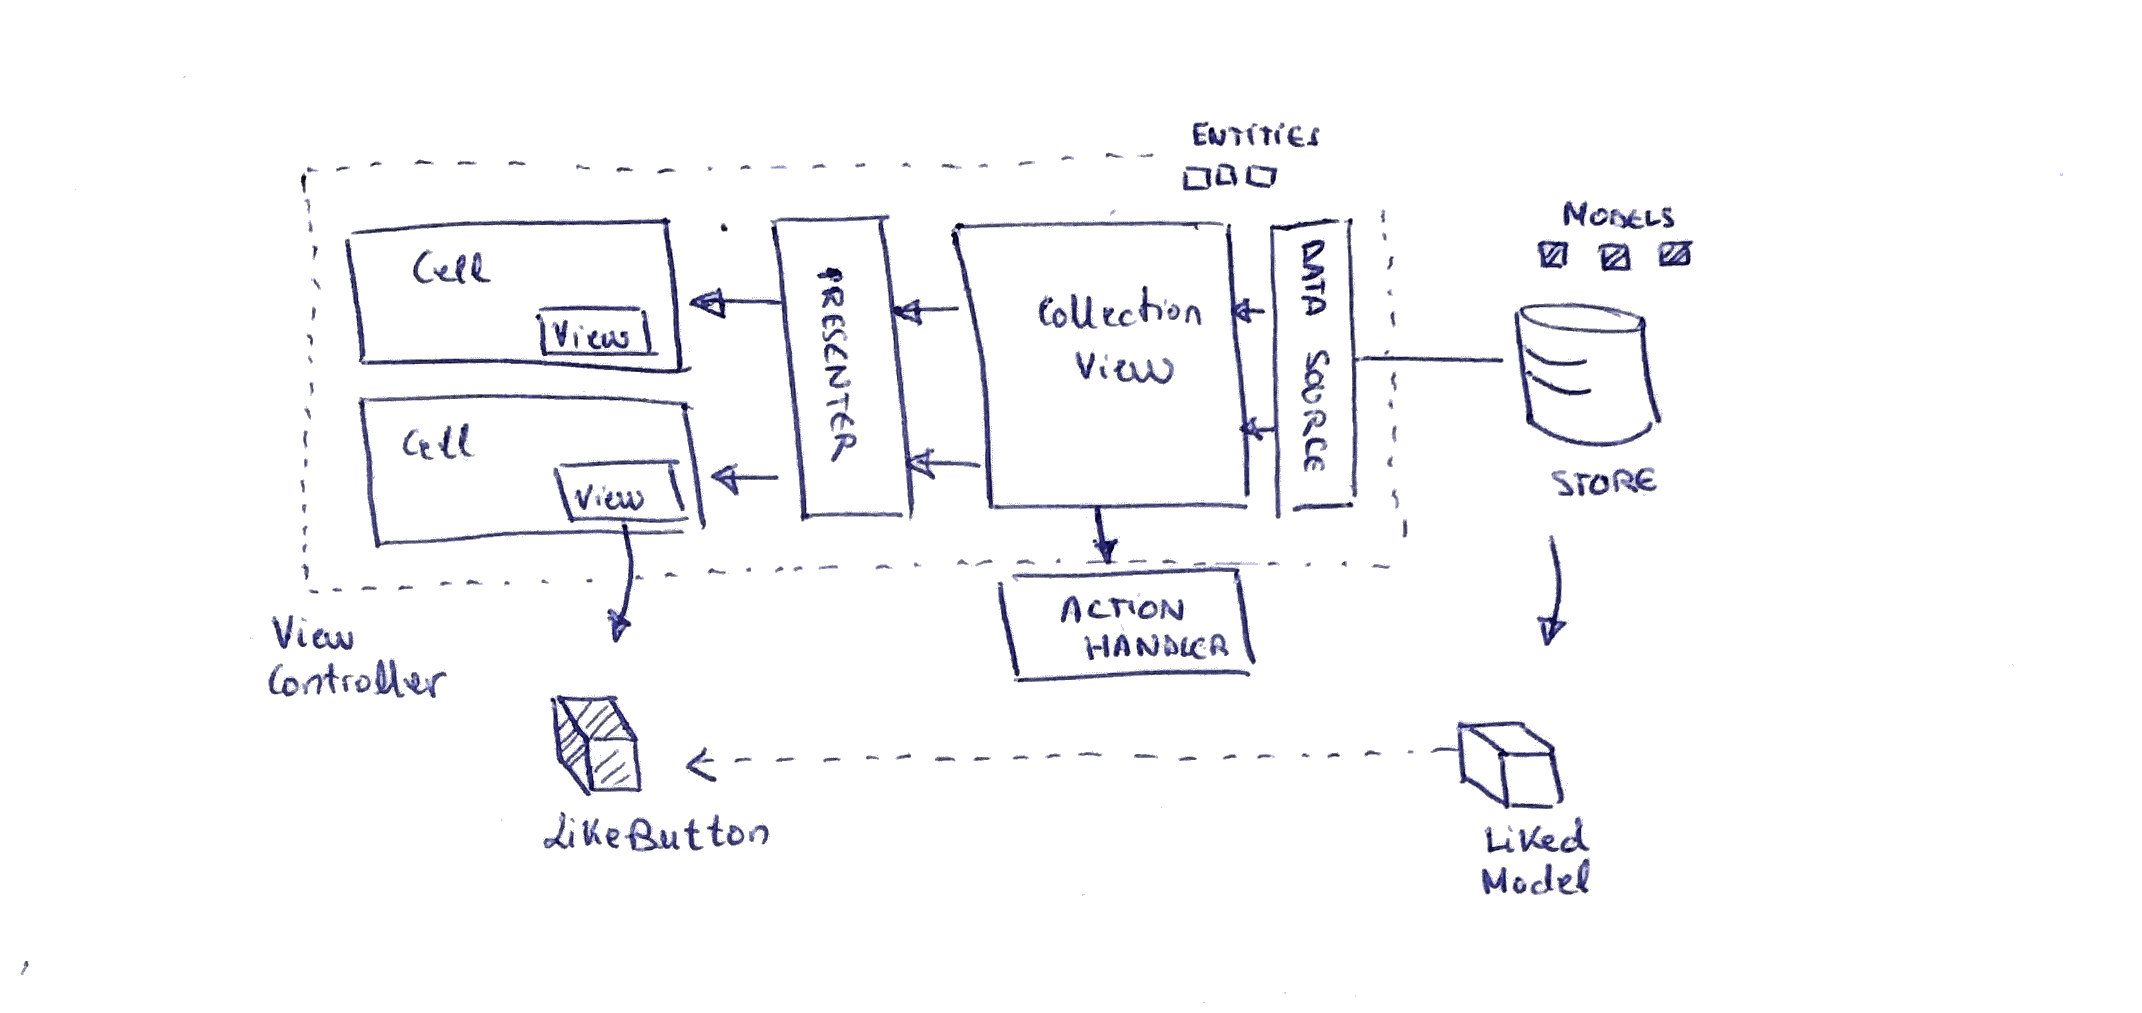 ENTITIES
MODELS
Cell
View
Cell
View
PRESENTER
Collection
View
DATA SOURCE
STORE
View
Controller
ACTION
HANDLER
LikeButton
Liked
Model